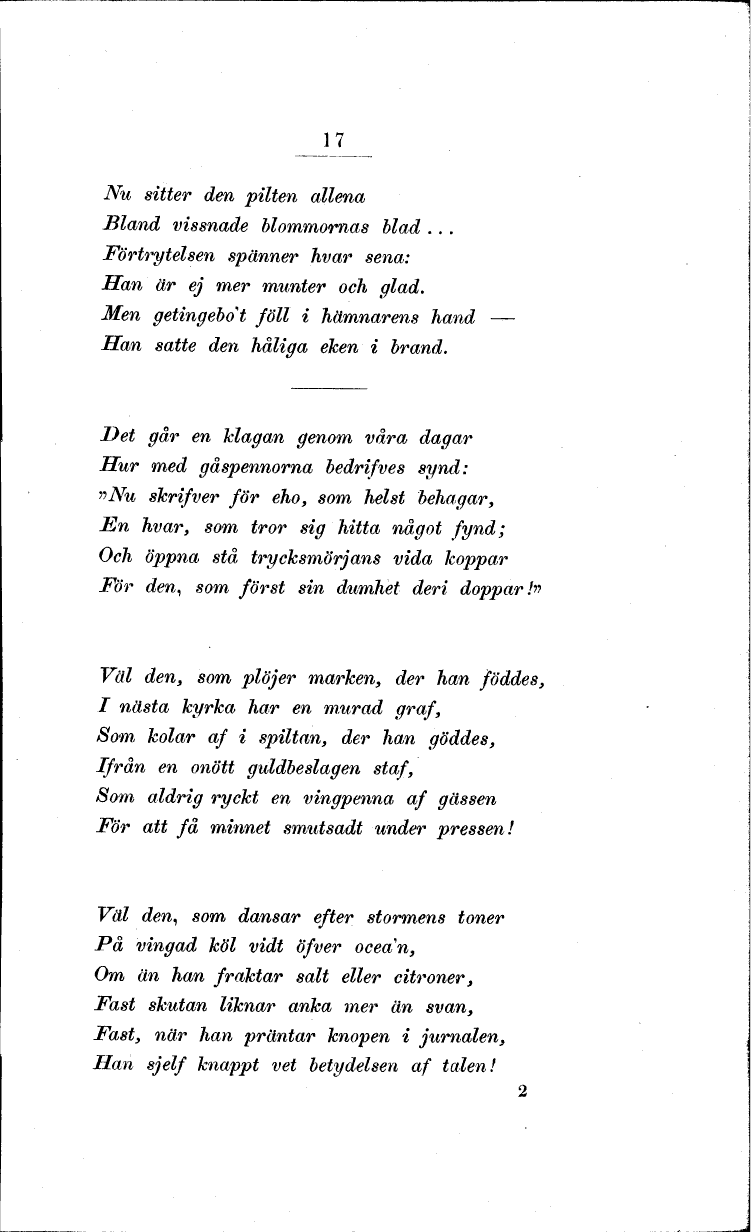 17
Nu sitter den pilten allena
Bland vissnade blommornas blad . . .
Förtrytelsen spänner hvar sena:
Han är ej mer munter och glad.
Men getingebo't föll i hämnarens hand —
Han satte den håliga eken i brand.
Det går en klagan genom våra dagar
Hur med gåspennorna bedrifves synd:
”Nu skrifver för eho, som helst behagar,
En hvar, som tror sig hitta något fynd;
Och öppna stå trycksmörjans vida koppar
För den, som först sin dumhet deri doppar!”
Väl den, som plöjer marken, der han föddes,
I nästa kyrka har en murad graf,
Som kolar af i spiltan, der han göddes,
Ifrån en onött guldbeslagen staf,
Som aldrig ryckt en vingpenna af gässen
För att få minnet smutsadt under pressen!
Väl den, som dansar efter stormens toner
På vingad köl vidt öfver ocea'n,
Om än han fraktar salt eller citroner,
Fast skutan liknar anka mer än svan,
Fast, när han präntar knopen i jurnalen,
Han sjelf knappt vet betydelsen af talen!
2